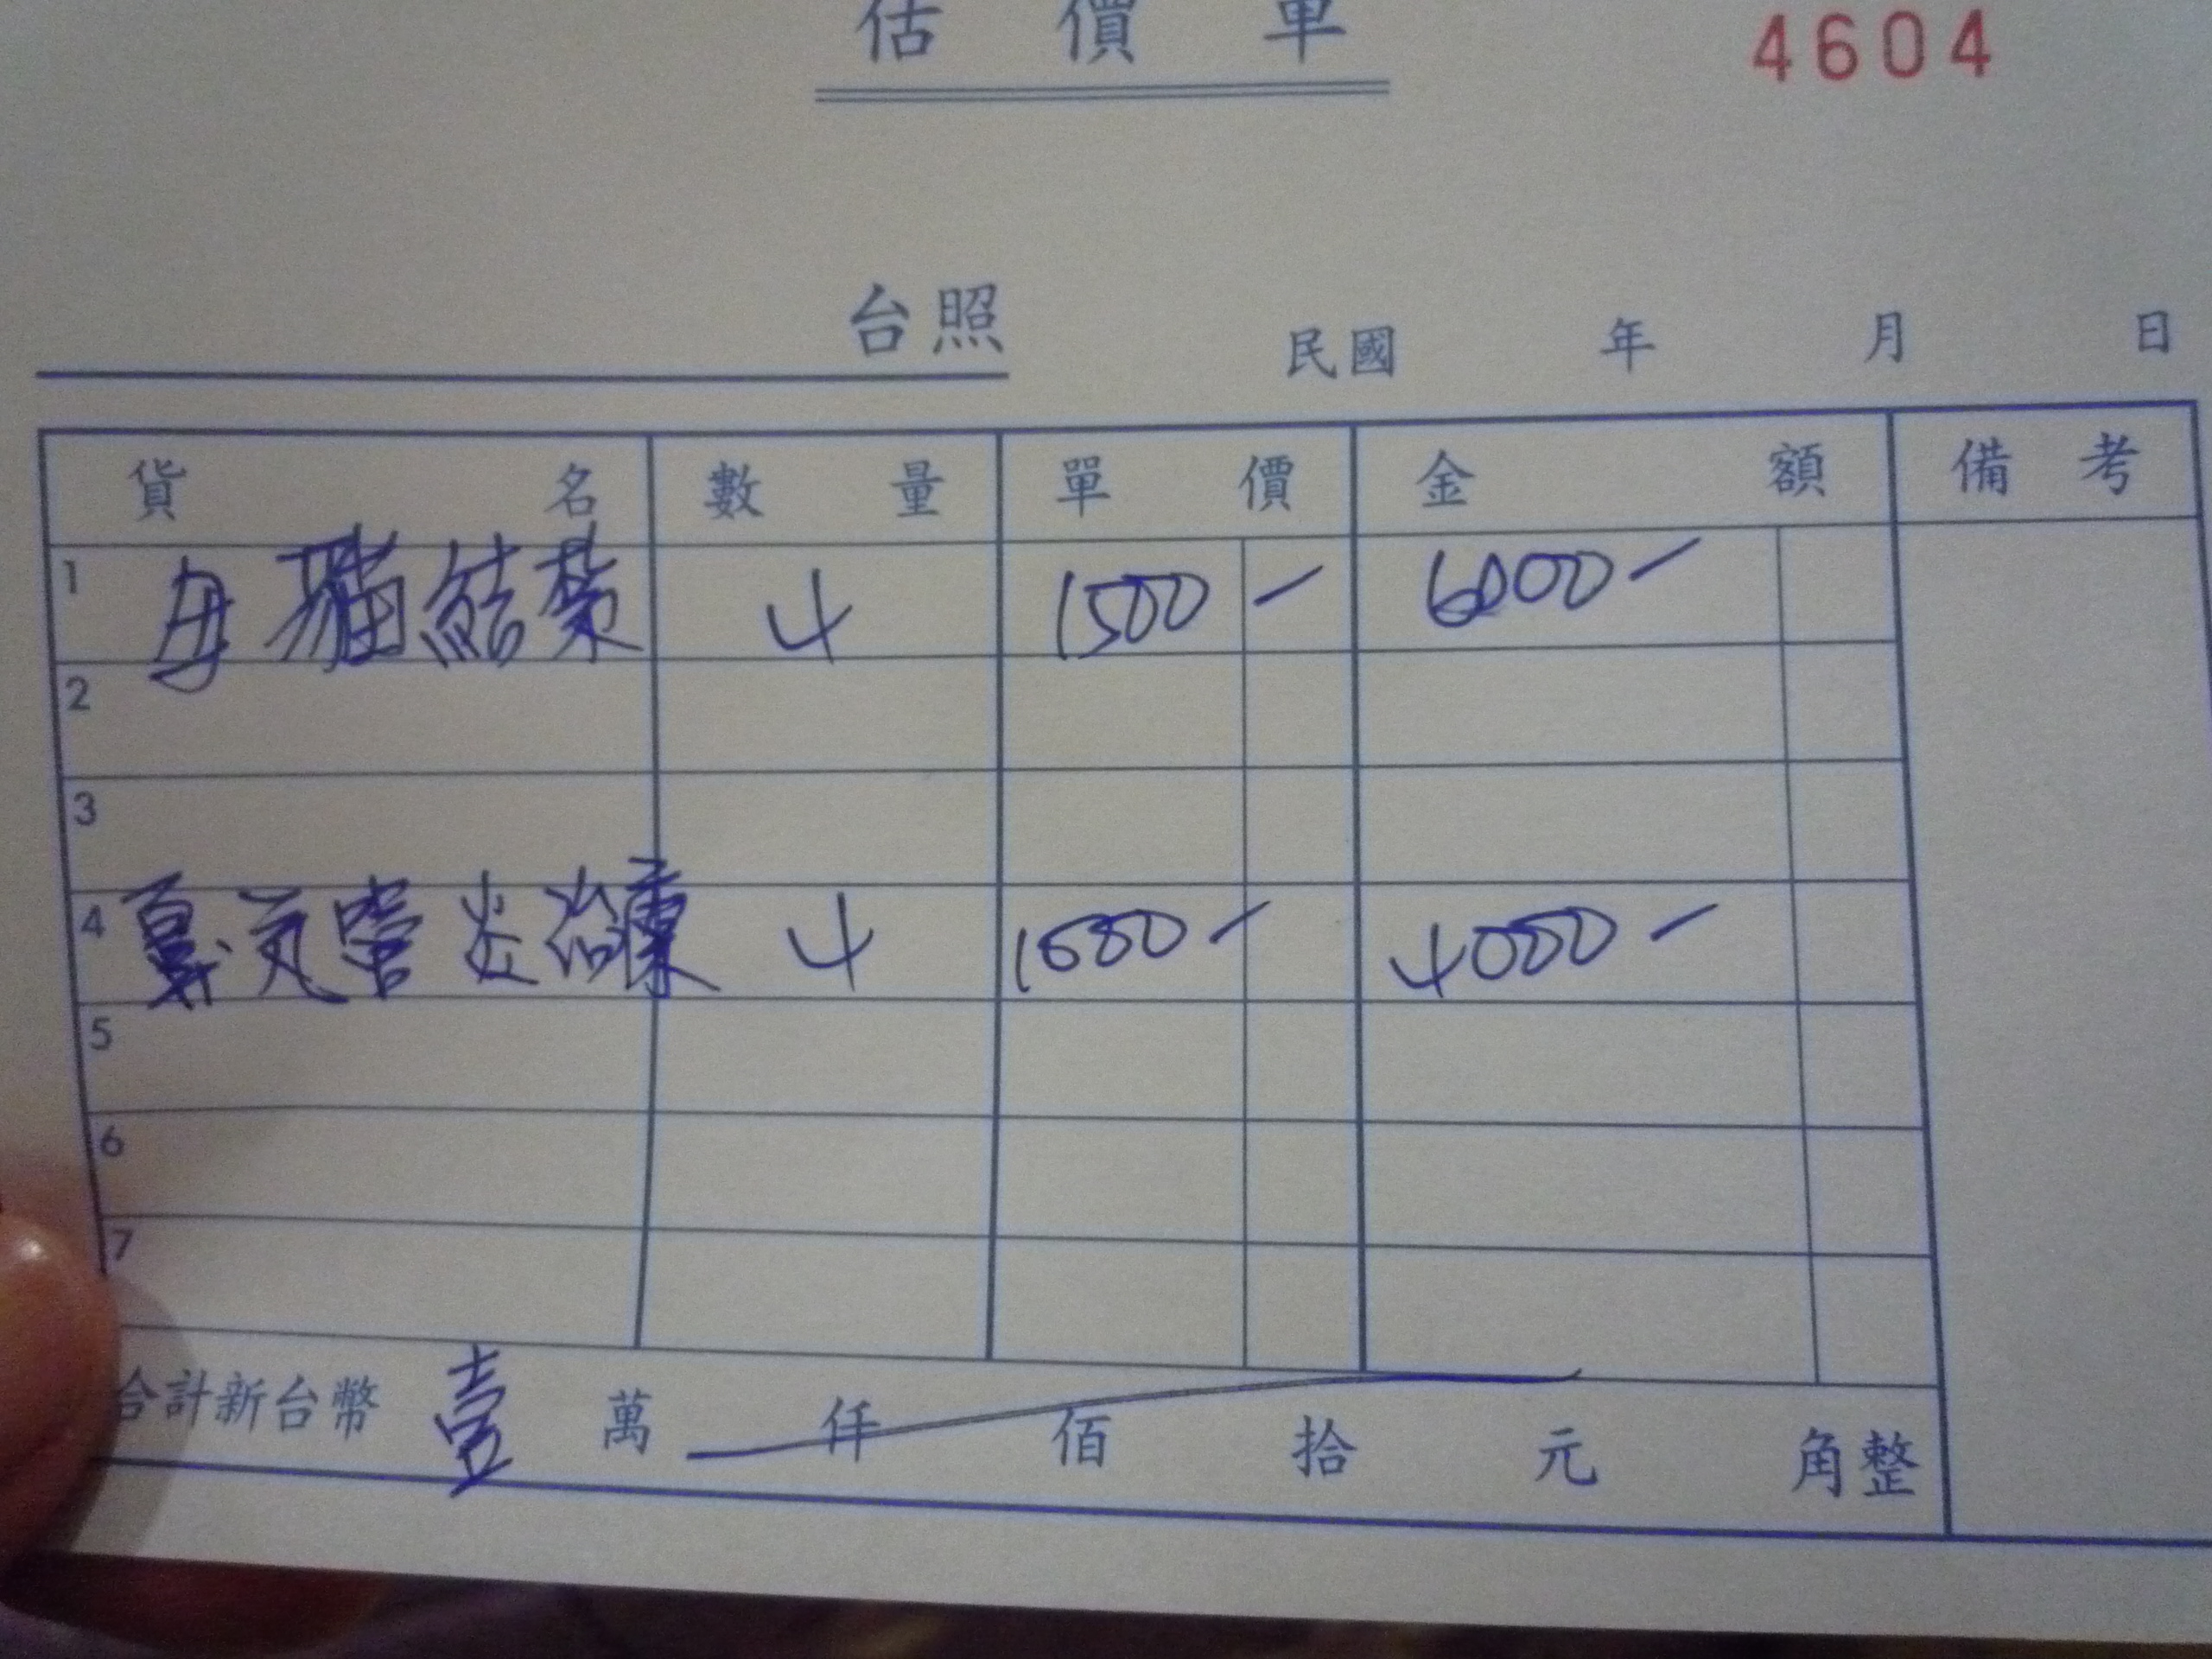 估價單
4604
台照 民國 年 月 日
貨名 數量 單價 金額 備考
1 母貓結紮 4 1500- 6000-
2
3
4 氣管炎治療 4 1000- 4000-
5
6
7
合計新台幣 壹 萬 仟 佰 拾 元 角整